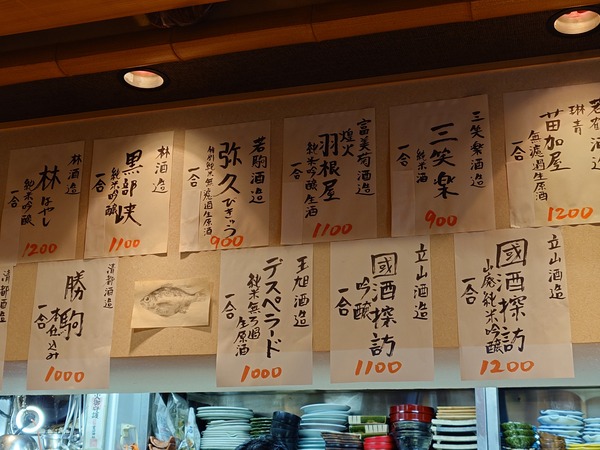 若鶴酒造
琳青
苗加屋
無濾過生原酒
1200
三笑楽酒造
三笑楽
純米酒
一合
900
富美菊酒造
煌火
羽根屋
純米吟醸生酒
一合
1100
若駒酒造
弥久びきゅう
特別純米無濾過生原酒
一合
900
林酒造
黒部峡
純米吟醸
一合
1100
林酒造
林はやし
純米吟醸
一合
1200
立山酒造
國酒探訪
山廃純米吟醸
一合
1200
立山酒造
國酒探訪
吟醸
一合
1100
玉旭酒造
デスペラード
純米無ろ過
生原酒
一合
1000
清都酒造
勝駒
本仕込み
一合
1000
清都酒造